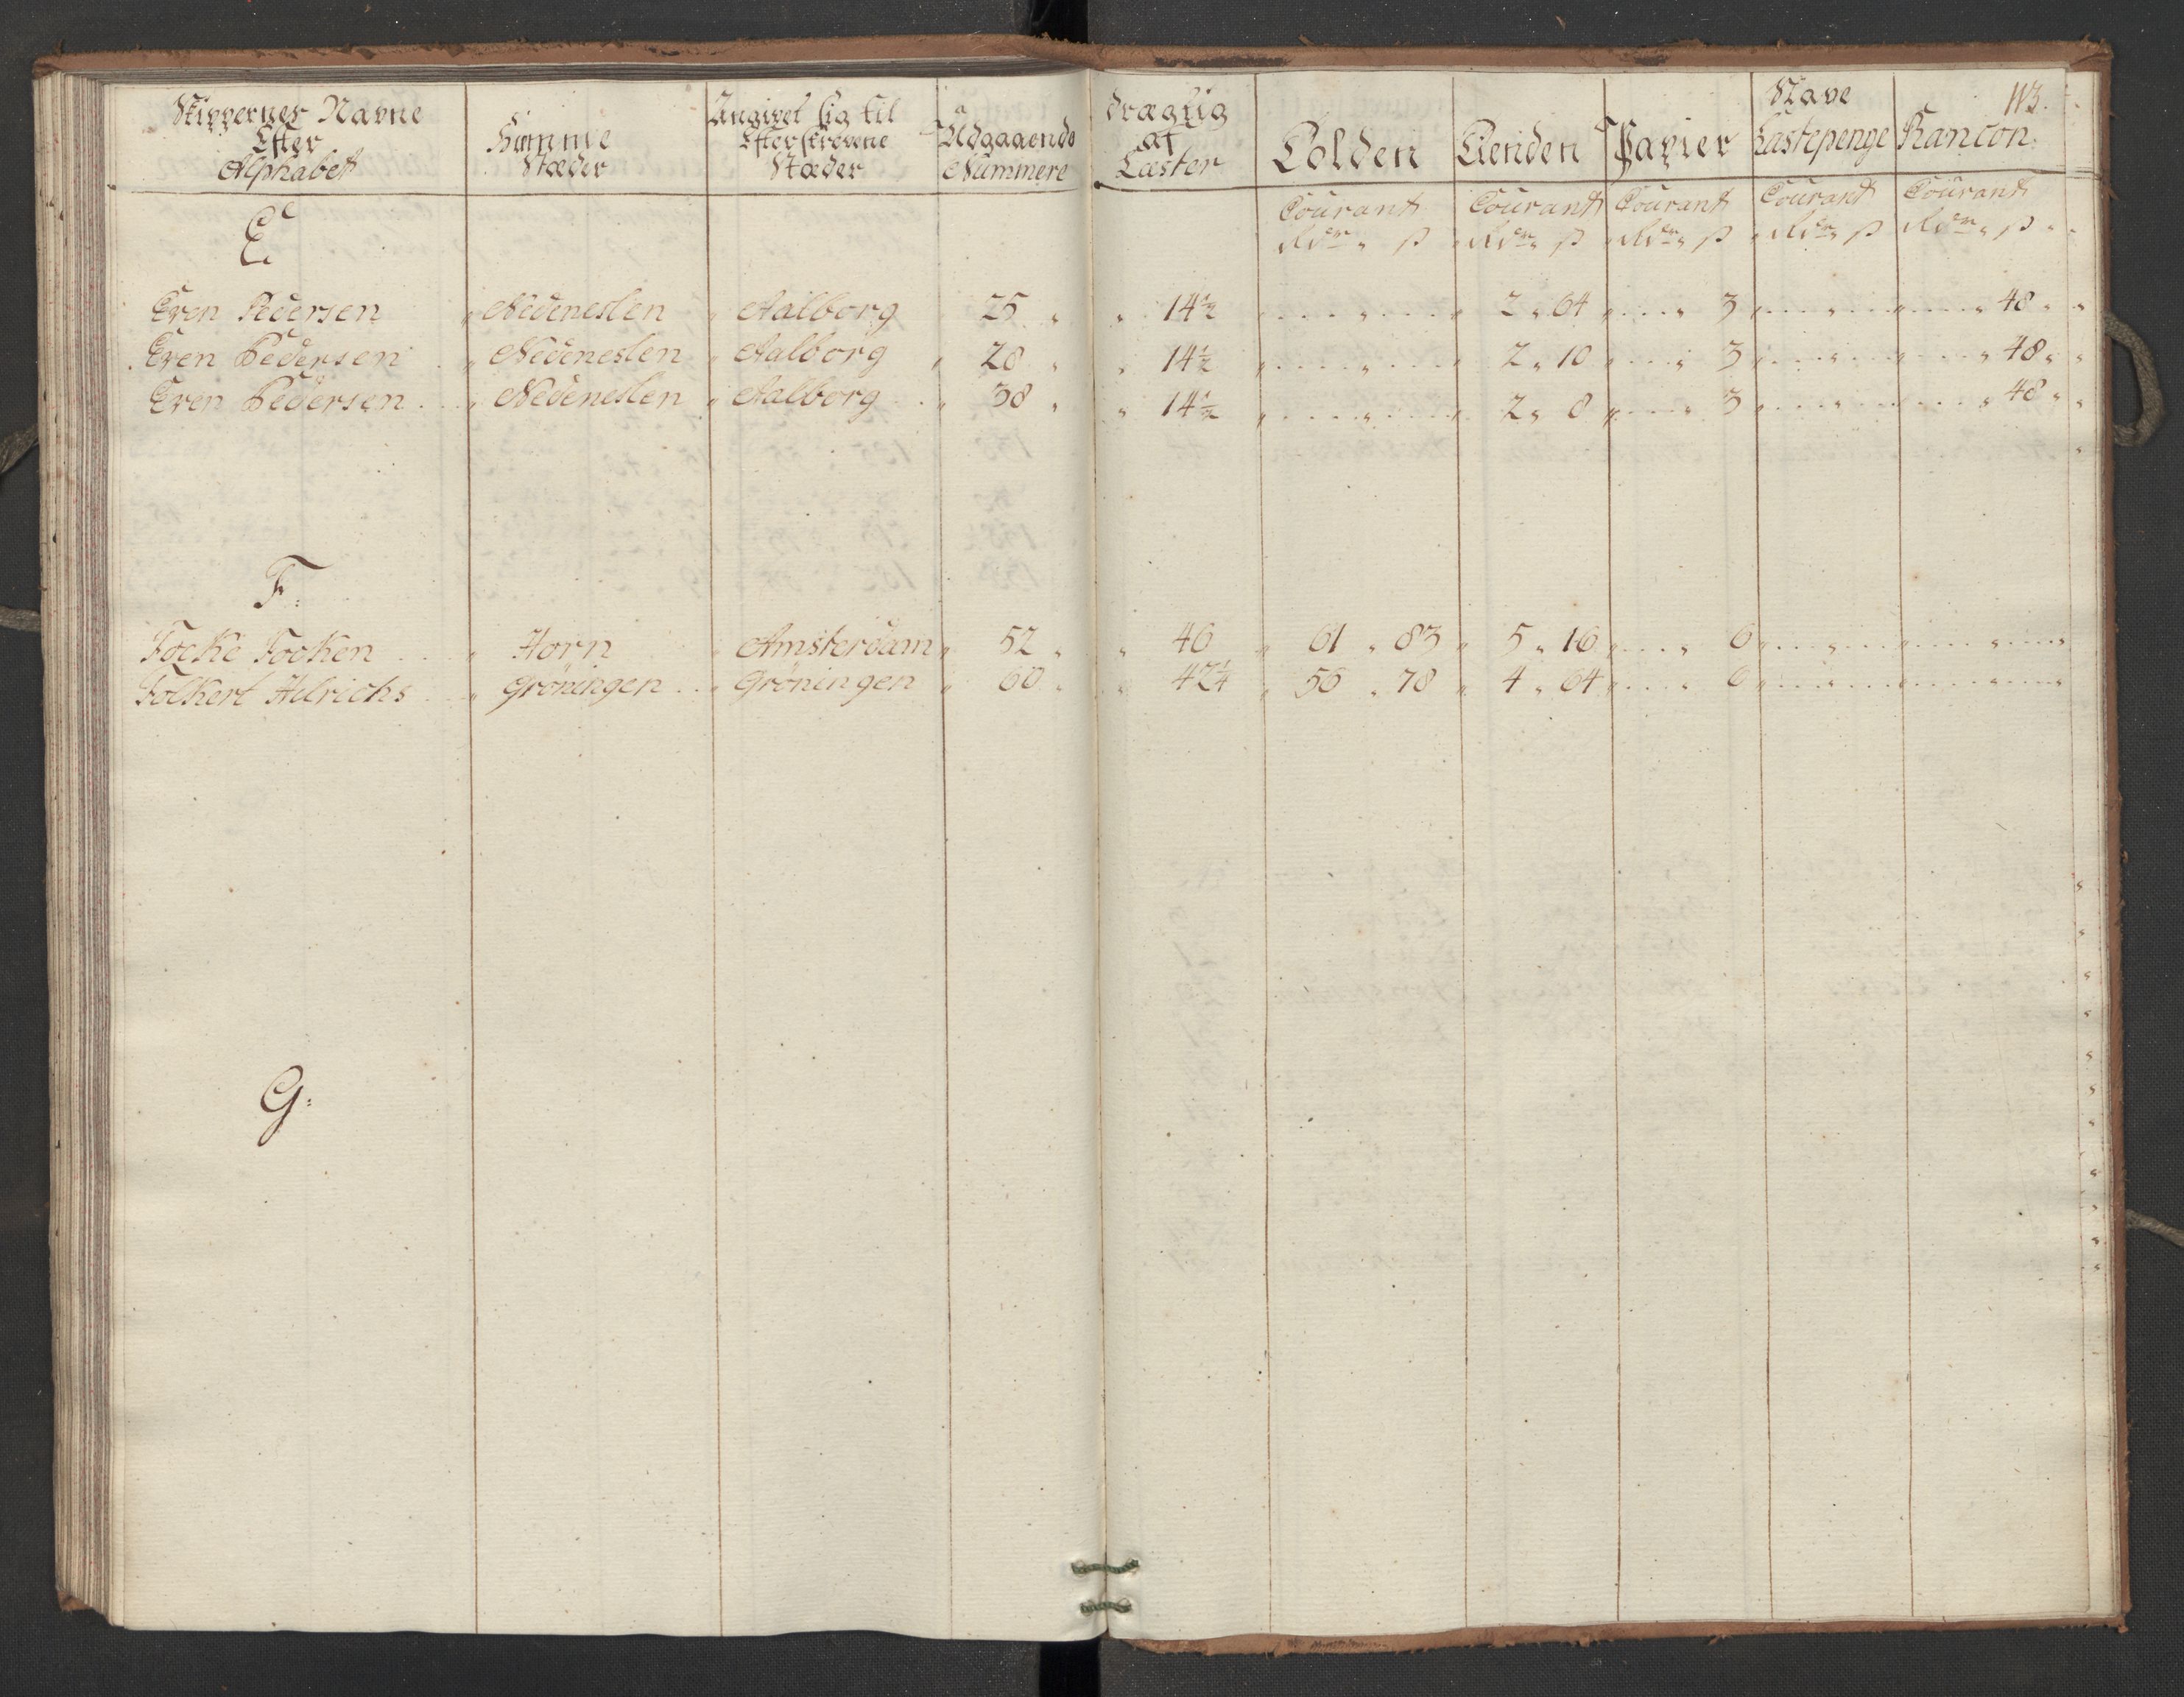 113.
Skippernes Navne Efter Alphabet | Hiemme Stæder | Angivet sig til Efterskrevne Stæder | Udgaaende Nummere | Drægtig af Læster | Tolden | Tienden | Papier | Slave Kastepenge | Rancon:
Courant | Courant | Courant | Courant | Courant
Rdr ß | Rdr ß | Rdr ß | Rdr ß | Rdr ß
E
Even Pedersen " Nedeneslen " Aalborg 25 " " 14½ " 2 " 64 " 3 " 48 "
Even Pedersen " Nedeneslen " Aalborg " 28 " " 14½ " 2 " 10 " 3 " 48 "
Even Pedersen " Nedeneslen " Aalborg " 38 " " 14½ " 2 " 8 " 3 " 48 "
F:
Focke Focken " Horn Amsterdam " 52 " " 46 " 61 " 83 " 5 " 16 " 6 "
Folkert Hilrichs " Gröningen " Gröningen " 60 " " 42¼ " 56 " 78 " 4 " 64 " 6 "
G: